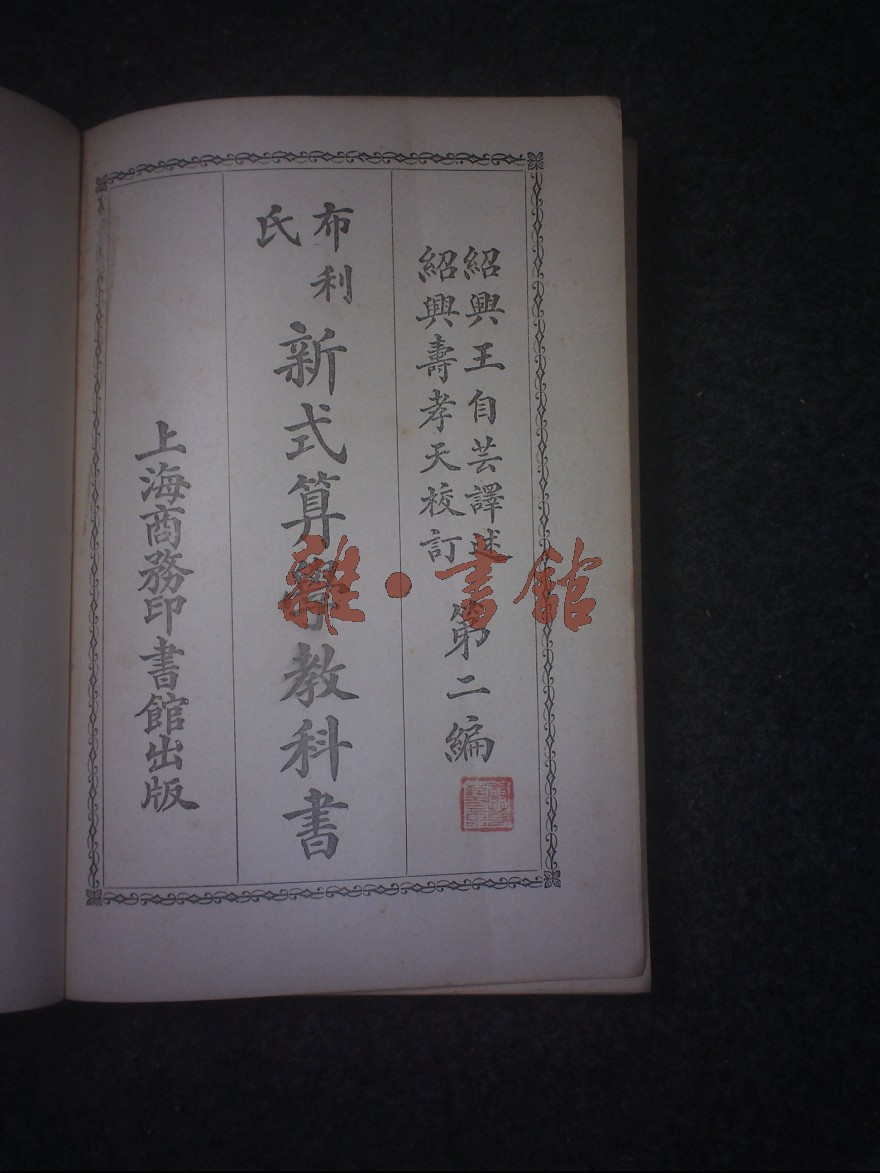 紹興王自芸譯述
紹興壽孝天校訂
第二編
布利氏
新式算學教科書
上海商務印書館出版
雜·書館